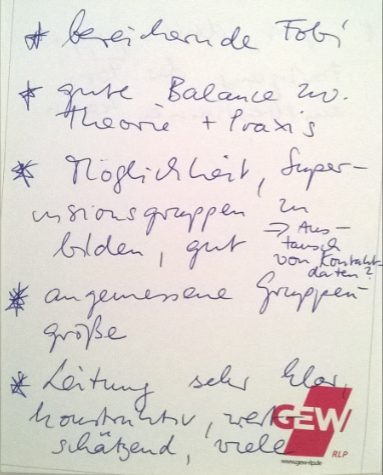 * bereichernde Fobi
* gute Balance zw.
Theorie + Praxis
* Möglichkeit, Super-
visionsgruppen zu
bilden, gut
⇒ Aus-
tausch
von Kontakt-
daten?
* angemessene Gruppen-
größe
* Leitung sehr klar,
konstruktiv, wert-
schätzend, viele
GEW
RLP
www.gew-rlp.de